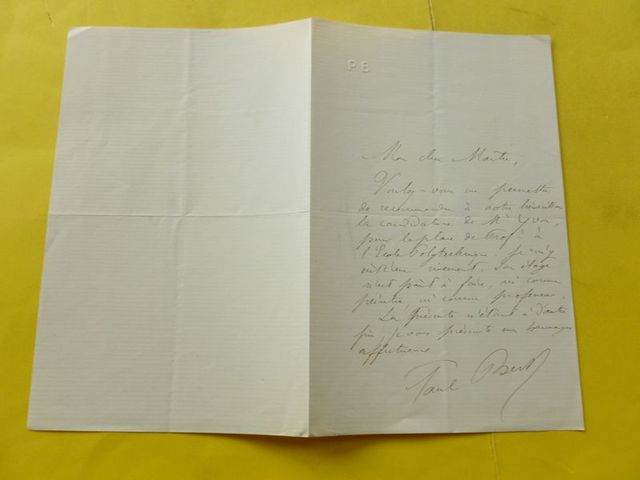 P B
Mon cher Maître,
Voulez-vous me permettre
de recommander à votre bienveillance
la candidature de Mr Yvon,
pour la place de Profr à
l'Ecole Polytechnique. Je m'y
intéresse vivement. Son éloge
n'est point à faire, ni comme
peintre, ni comme professeur.
La présente n'étant à d'autre
fin, je vous présente mes hommages
affectueux
Paul Bert